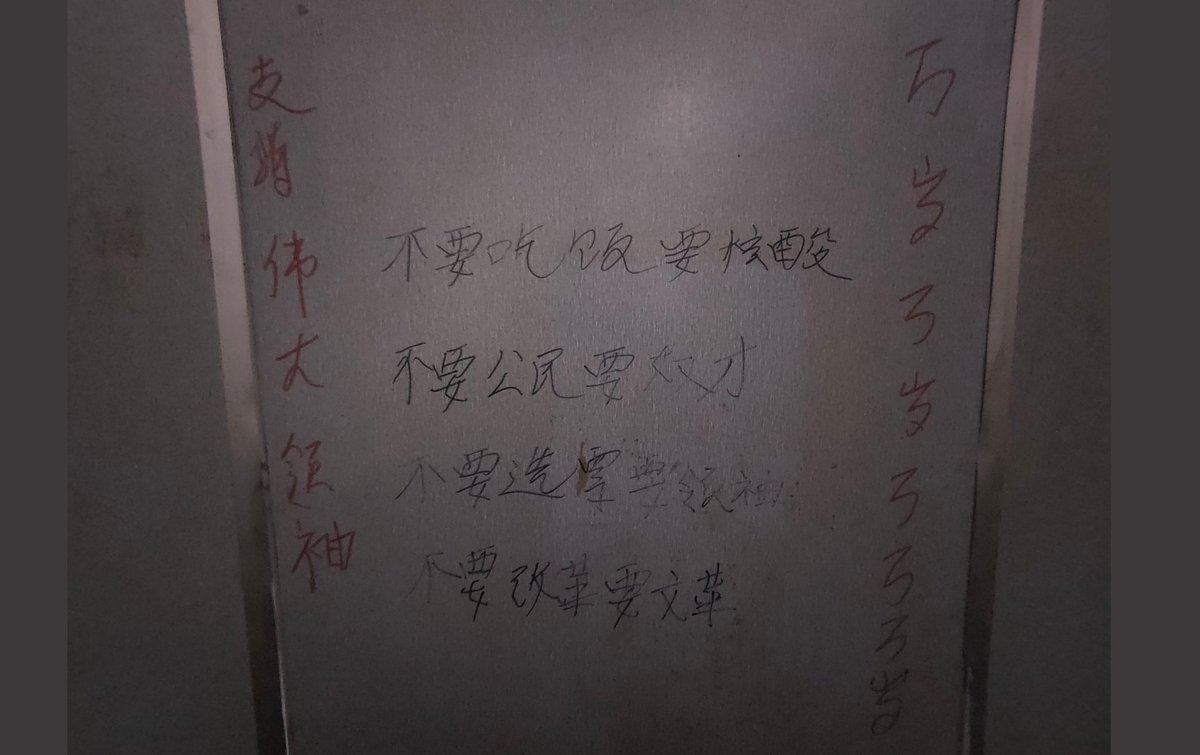 支持伟大领袖
不要吃饭要核酸
不要公民要奴才
不要选票要领袖
不要改革要文革
万岁万岁万万万岁